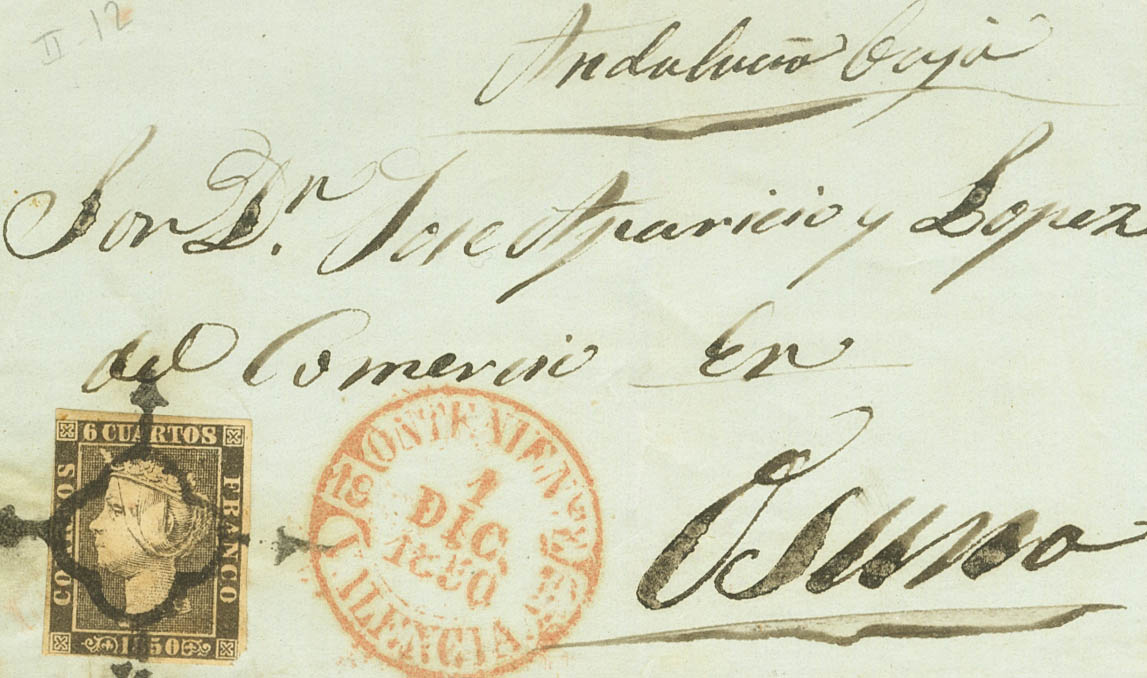 II-12
Andalucia baja
Sor Dn. Jose Aparicio y Lopez
del Comercio En
Osuna
6 CUARTOS
CORREOS
FRANCO
1850
ONTENIENTE
19
1
DIC.
1850
VALENCIA